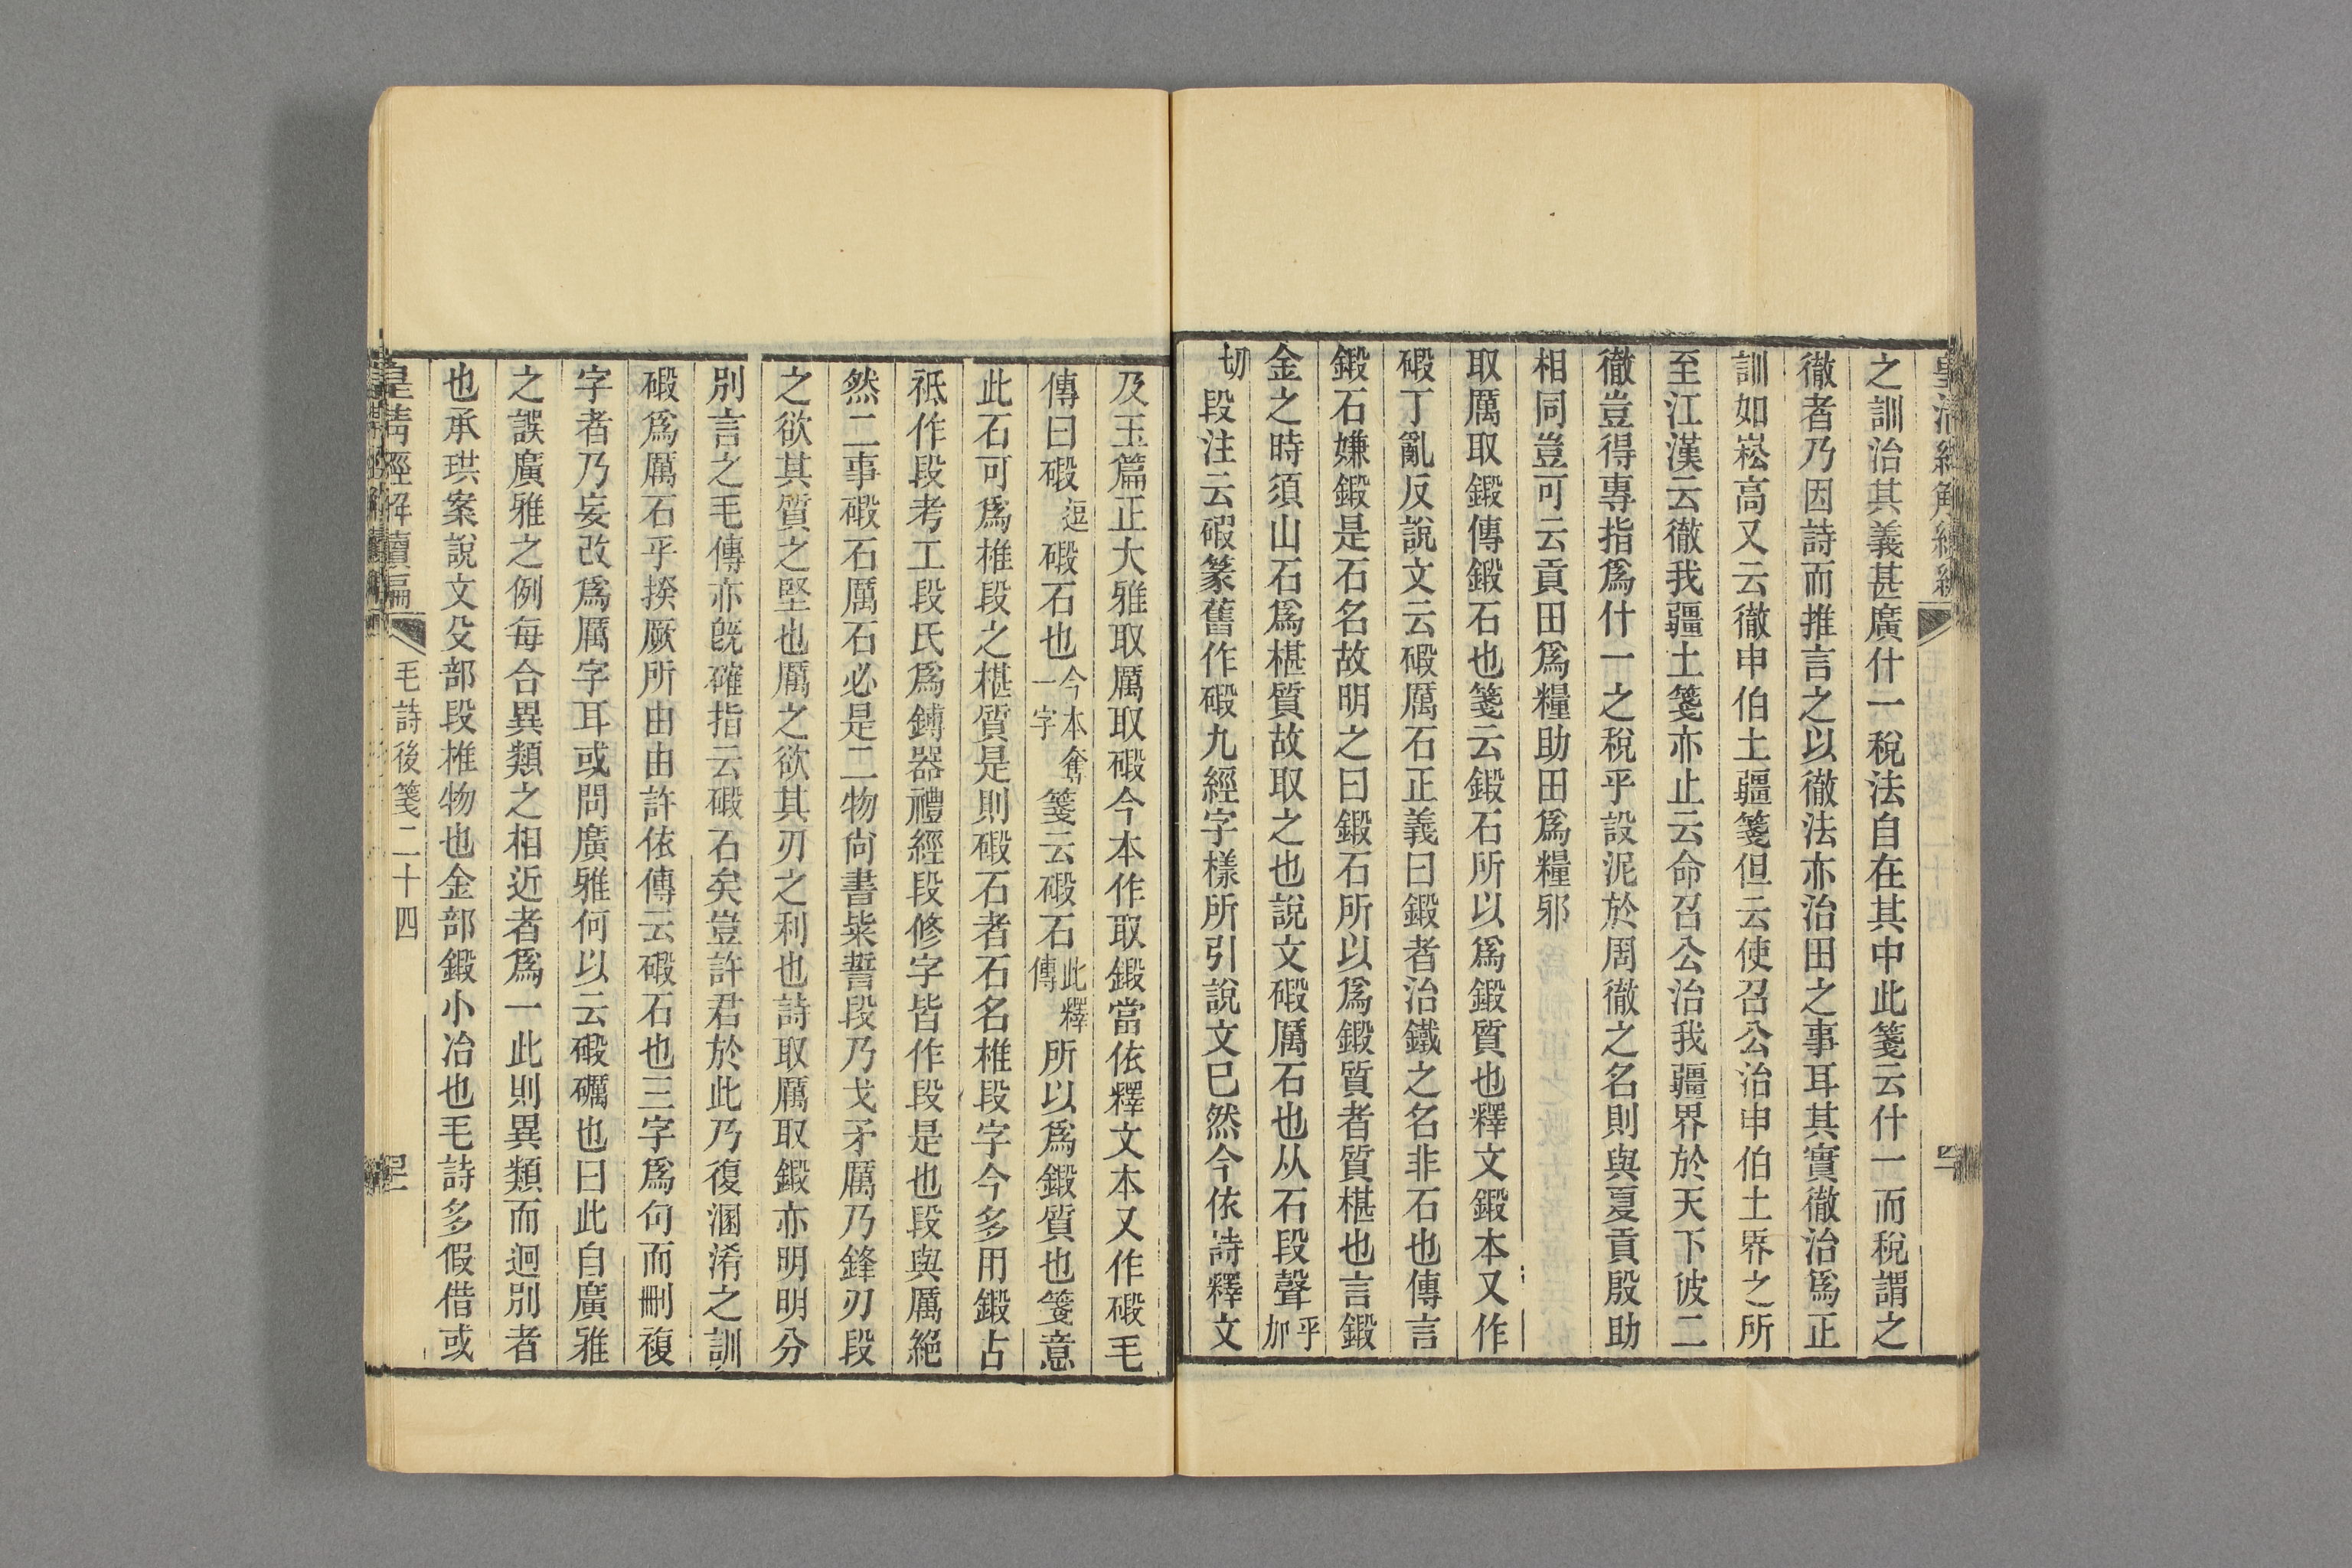 之訓治其義甚廣什一稅法自在其中此箋云什一而稅謂之
徹者乃因詩而推言之以徹法亦治田之事耳其實徹治爲正
訓如崧高又云徹申伯土疆箋但云使召公治申伯土界之所
至江漢云徹我疆土箋亦止云命召公治我疆界於天下彼二
徹豈得專指爲什一之稅乎設泥於周徹之名則與夏貢殷助
相同豈可云貢田爲糧助田爲糧邪
取厲取鍛傳鍛石也箋云鍛石所以爲鍛質也釋文鍛本又作
碫丁亂反說文云碫厲石正義曰鍛者治鐵之名非石也傳言
鍛石嫌鍛是石名故明之曰鍛石所以爲鍛質者質椹也言鍛
金之時須山石爲椹質故取之也說文碫厲石也从石段聲乎加
切段注云碬篆舊作碫九經字樣所引說文已然今依詩釋文
及玉篇正大雅取厲取碫今本作取鍛當依釋文本又作碫毛
傳曰碫逗碫石也今本奪一字箋云碫石此釋傳所以爲鍛質也箋意
此石可爲椎段之椹質是則碫石者石名椎段字今多用鍛古
祇作段考工段氏爲鎛器禮經段修字皆作段是也段與厲絕
然二事碫石厲石必是二物尙書粊誓段乃戈矛厲乃鋒刃段
之欲其質之堅也厲之欲其刃之利也詩取厲取鍛亦明明分
別言之毛傳亦旣確指云碫石矣豈許君於此乃復溷淆之訓
碫爲厲石乎揆厥所由由許依傳云碫石也三字爲句而刪複
字者乃妄改爲厲字耳或問廣雅何以云碫礪也曰此自廣雅
之誤廣雅之例每合異類之相近者爲一此則異類而迥別者
也承珙案說文殳部段椎物也金部鍛小冶也毛詩多假借或
皇淸經解續編　毛詩後箋二十四